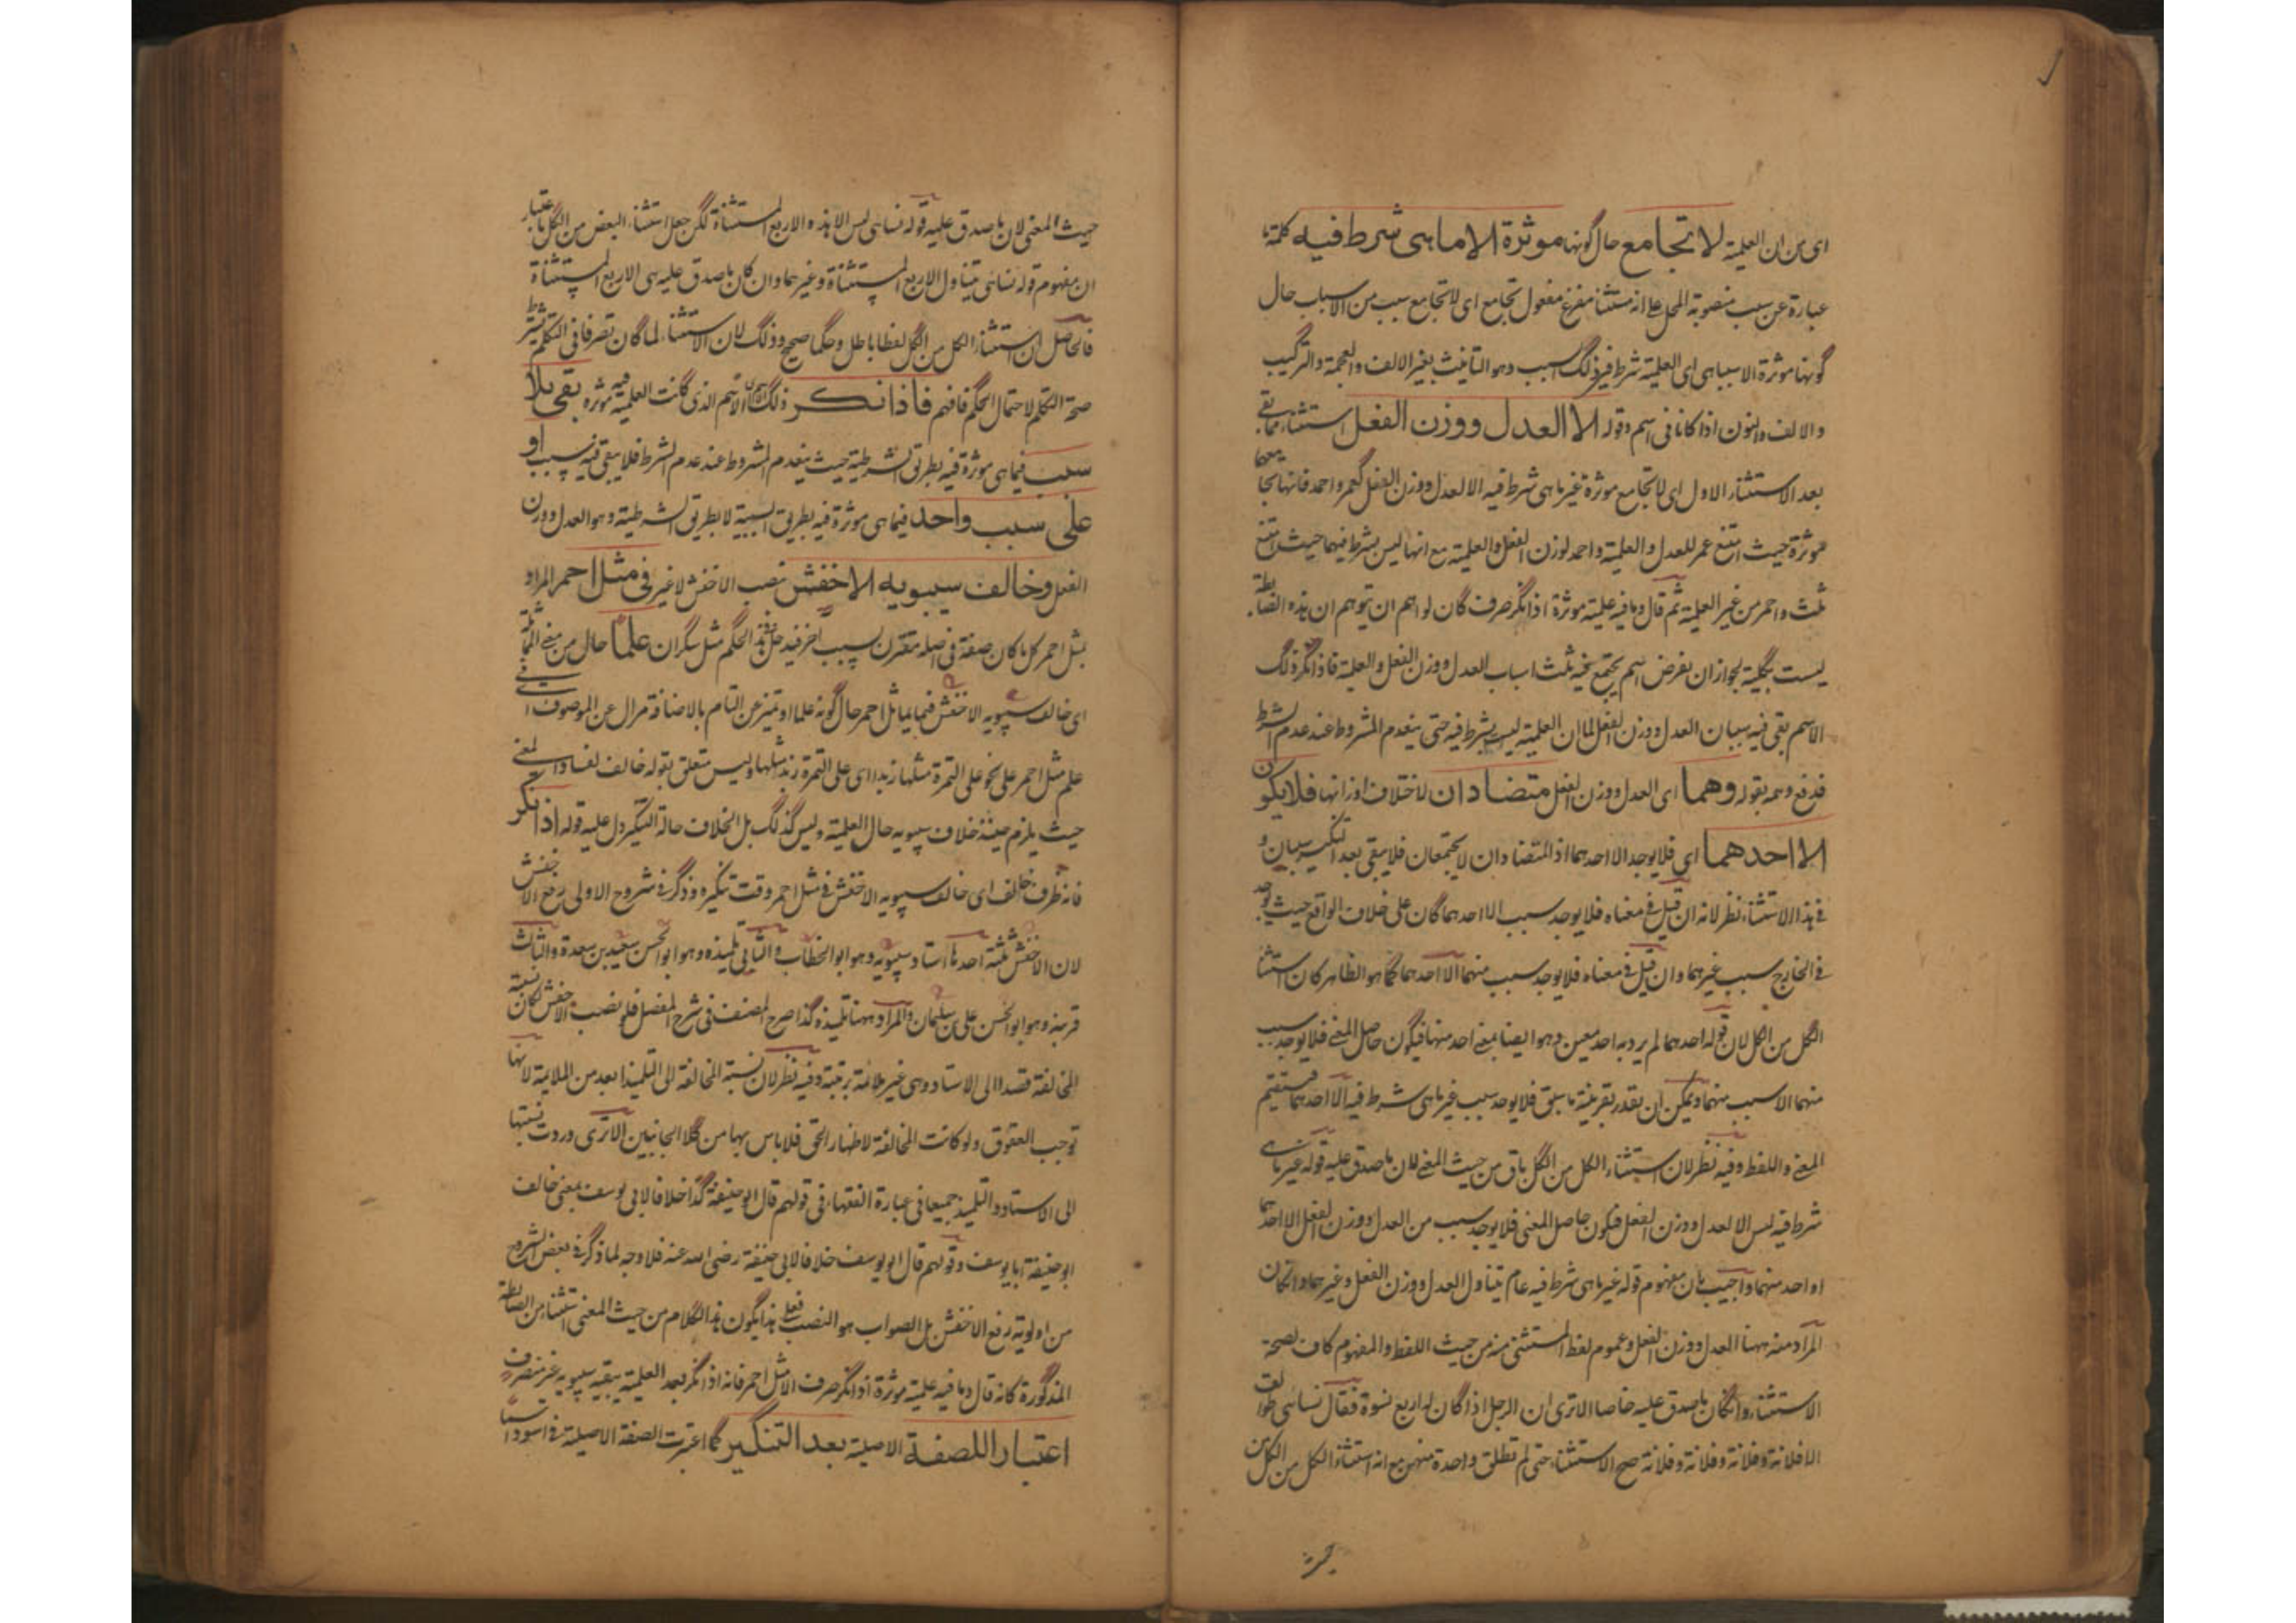 اى من ان العلمية لا تجامع حال كونها موثرة الا ما هى شرط فيه كلمة ما
عبارة عن سبب منصوبة المحل على انه مستثنا مفرغ مفعول تجامع اى لا تجامع سبب من الاسباب حال
كونها موثرة الا سببا هى اى العلمية شرط فى ذلك السبب وهو التانيث بغير الالف والعجمة والتركيب
والالف والنون اذا كانا فى اسم وقوله الا العدل ووزن الفعل استثناء مما بقى
بعد الاستثناء الاول اى لا تجامع موثرة غير ما هى شرط فيه الا العدل ووزن الفعل كعمر واحمد فانها تجامعهما
موثرة حيث امتنع عمر للعدل والعلمية واحمد لوزن الفعل والعلمية مع انها ليس بشرط فيهما حيث امتنع
ثلث واحمر من غير العلمية ثم قال وما فيه علمية موثرة اذا نكر صرف كان لواهم ان يتوهم ان هذه الضابطة
ليست بكلية لجواز ان نفرض اسم يجتمع فيه ثلث اسباب العدل ووزن الفعل والعلمية فاذا نكر ذلك
الاسم بقى فيه سببان العدل ووزن الفعل لما ان العلمية ليست بشرط فيه حتى ينعدم المشروط عند عدم الشرط
فدفع وهمه بقوله وهما اى العدل ووزن الفعل متضادان لاختلاف اوزانها فلا يكون
الا احدهما اى فلا يوجد الا احدهما اذ المتضادان لا يجتمعان فلا يبقى بعد التنكير سببان و
فى هذا الاستثناء نظر لانه ان قيل فى معناه فلا يوجد سبب الا احدهما كان على خلاف الواقع حيث يوجد
فى الخارج سبب غيرهما وان قيل فى معناه فلا يوجد سبب منهما الا احدهما كما هو الظاهر كان استثناء
الكل من الكل لان قوله احدهما لم يرد به احد معين وهو ايضا بمعنى احد منهما فيكون حاصل المعنى فلا يوجد سبب
منهما الا سبب منهما ويمكن ان يقدر بقرينة ما سبق فلا يوجد سبب غير ما هى شرط فيه الا احدهما فيستقيم
المعنى واللفظ وفيه نظر لان استثناء الكل من الكل باق من حيث المعنى لان ما صدق عليه قوله غير ما هى
شرط فيه ليس الا العدل ووزن الفعل فيكون حاصل المعنى فلا يوجد سبب من العدل ووزن الفعل الا احدهما
او احد منهما واجيب بان مفهوم قوله غير ما هى شرط فيه عام يتناول العدل ووزن الفعل وغيرهما وان كان
المراد منه ههنا العدل ووزن الفعل وعموم لفظ المستثنى منه من حيث اللفظ والمفهوم كاف لصحة
الاستثناء وان كان ما صدق عليه خاصا الا ترى ان الرجل اذا كان له اربع نسوة فقال نسائى طوالق
الا فلانة وفلانة وفلانة وفلانة صح الاستثناء حتى لم تطلق واحدة منهن مع انه استثناء الكل من الكل من
حيث
حيث المعنى لان ما صدق عليه قوله نسائى ليس الا هذه الاربع المستثناة لكن جعل استثناء البعض من الكل باعتبار
ان مفهوم قوله نسائى يتناول الاربع المستثناة وغيرهما وان كان ما صدق عليه هى الاربع المستثناة
فالحاصل ان استثناء الكل من الكل لفظا باطل وحكما صحيح وذلك لان الاستثناء لما كان تصرفا فى التكلم يشترط
صحة التكلم لاحتمال الحكم فافهم فاذا نكر ذلك الاسم الذى كانت العلمية فيه موثرة بقى بلا
سبب فيما هى موثرة فيه بطريق الشرطية حيث ينعدم المشروط عند عدم الشرط فلا يبقى فيه سبب او
على سبب واحد فيما هى موثرة فيه بطريق السببية لا بطريق الشرطية وهو العدل ووزن
الفعل وخالف سيبويه الاخفش نصب الاخفش لا غير فى مثل احمر المراد
بمثل احمر كل ما كان صفة فى اصله مقترن بسبب اخر فيدخل فى هذا الحكم مثل سكران علما حال من معنى المماثلة
اى خالف سيبويه الاخفش فيما يماثل احمر حال كونه علما او تميز عن التام بالاضافة مزال عن الموصوف اى فى
علم مثل احمر على نحو على التمرة مثلها زبدا اى على التمرة زبد مثلها وليس متعلق بقوله خالف لفساد المعنى
حيث يلزم حينئذ خلاف سيبويه حال العلمية وليس كذلك بل الخلاف حالة التنكير دل عليه قوله اذا نكر
فانه ظرف خالف اى خالف سيبويه الاخفش فى مثل احمر وقت تنكيره وذكر فى شروح الاولى رفع الاخفش
لان الاخفش ثلثة احدها استاد سيبويه وهو ابو الخطاب والثانى تلميذه وهو ابو الحسن سعيد بن سعدة والثالث
قرينه وهو ابو الحسن على بن سليمان والمراد ههنا تلميذه كذا صرح المصنف فى شرح المفصل فلو نصب الاخفش لكان نسبة
المخالفة قصدا الى الاستاد وهى غير ملائمة برتبته وفيه نظر لان نسبة المخالفة الى التلميذ ابعد من الملايمة لانها
توجب العقوق ولو كانت المخالفة لاظهار الحق فلا باس بها من كلا الجانبين الا ترى وردت نسبتها
الى الاستاد والتلميذ جميعا فى عبارة الفقهاء فى قولهم قال ابو حنيفة كذا خلافا لابى يوسف بمعنى خالف
ابو حنيفة ابا يوسف وقولهم قال ابو يوسف خلافا لابى حنيفة رضى الله عنه فلا وجه لما ذكر فى بعض الشروح
من اولوية رفع الاخفش بل الصواب هو النصب فعلى هذا يكون هذا الكلام من حيث المعنى استثناء من الضابطة
المذكورة كانه قال وما فيه علمية موثرة اذا نكر صرف الا مثل احمر فانه اذا نكر بعد العلمية يبقيه سيبويه غير منصرف
اعتبارا للصفة الاصلية بعد التنكير كما اعتبرت الصفة الاصلية فى اسود اسما